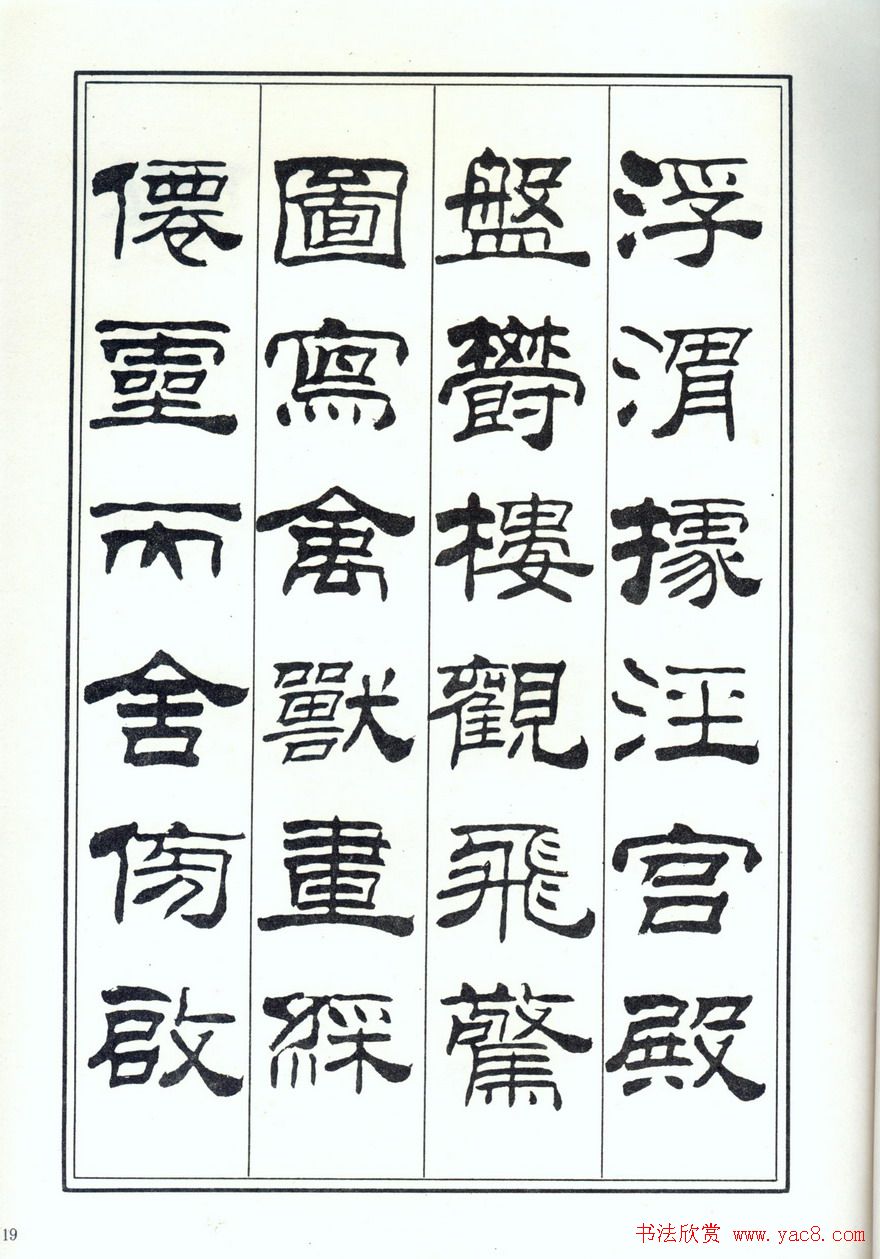 浮渭據涇宮殿
盤鬱樓觀飛驚
圖寫禽獸畫綵
僊靈丙舍傍啟
19
书法欣赏 www.yac8.com